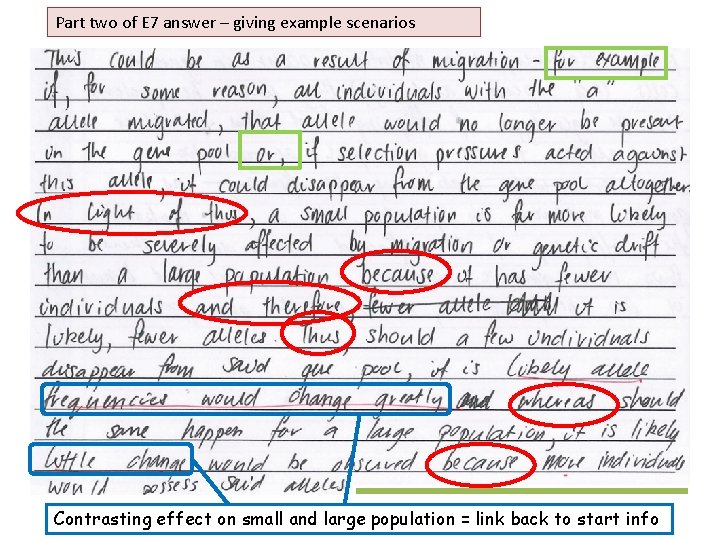 Part two of E7 answer – giving example scenarios
This could be as a result of migration - for example
if, for some reason, all individuals with the "a"
allele migrated, that allele would no longer be present
in the gene pool or, if selection pressures acted against
this allele, it could disappear from the gene pool altogether.
In light of this, a small population is far more likely
to be severely affected by migration or genetic drift
than a large population because it has fewer
individuals and therefore, fewer allele it is
likely, fewer alleles. Thus, should a few individuals
disappear from said gene pool, it is likely allele
frequencies would change greatly and whereas should
the same happen for a large population, it is likely
little change would be observed because more individuals
would possess said alleles.
Contrasting effect on small and large population = link back to start info